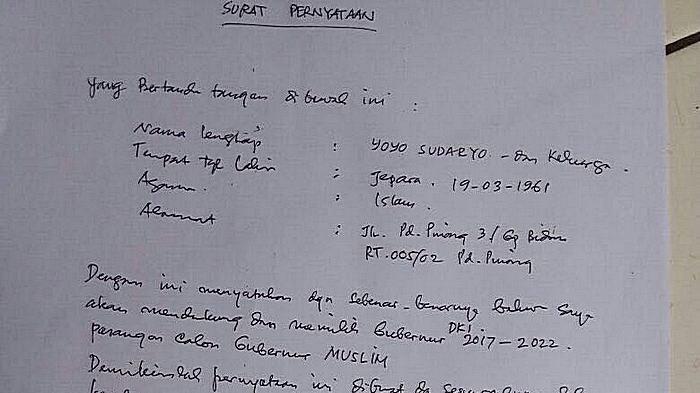 SURAT PERNYATAAN
Yang Bertanda tangan di bawah ini :
Nama lengkap : YOYO SUDARYO - dan Keluarga.
Tempat tgl Lahir : Jepara, 19-03-1961
Agama : Islam.
Alamat : JL. Pd. Pinang 3 / Gg Bidan
RT. 005/02 Pd. Pinang
Dengan ini menyatakan dgn sebenar-benarnya bahwa saya
akan mendukung dan memilih Gubernur DKI 2017-2022.
pasangan Calon Gubernur MUSLIM
Demikianlah pernyataan ini dibuat